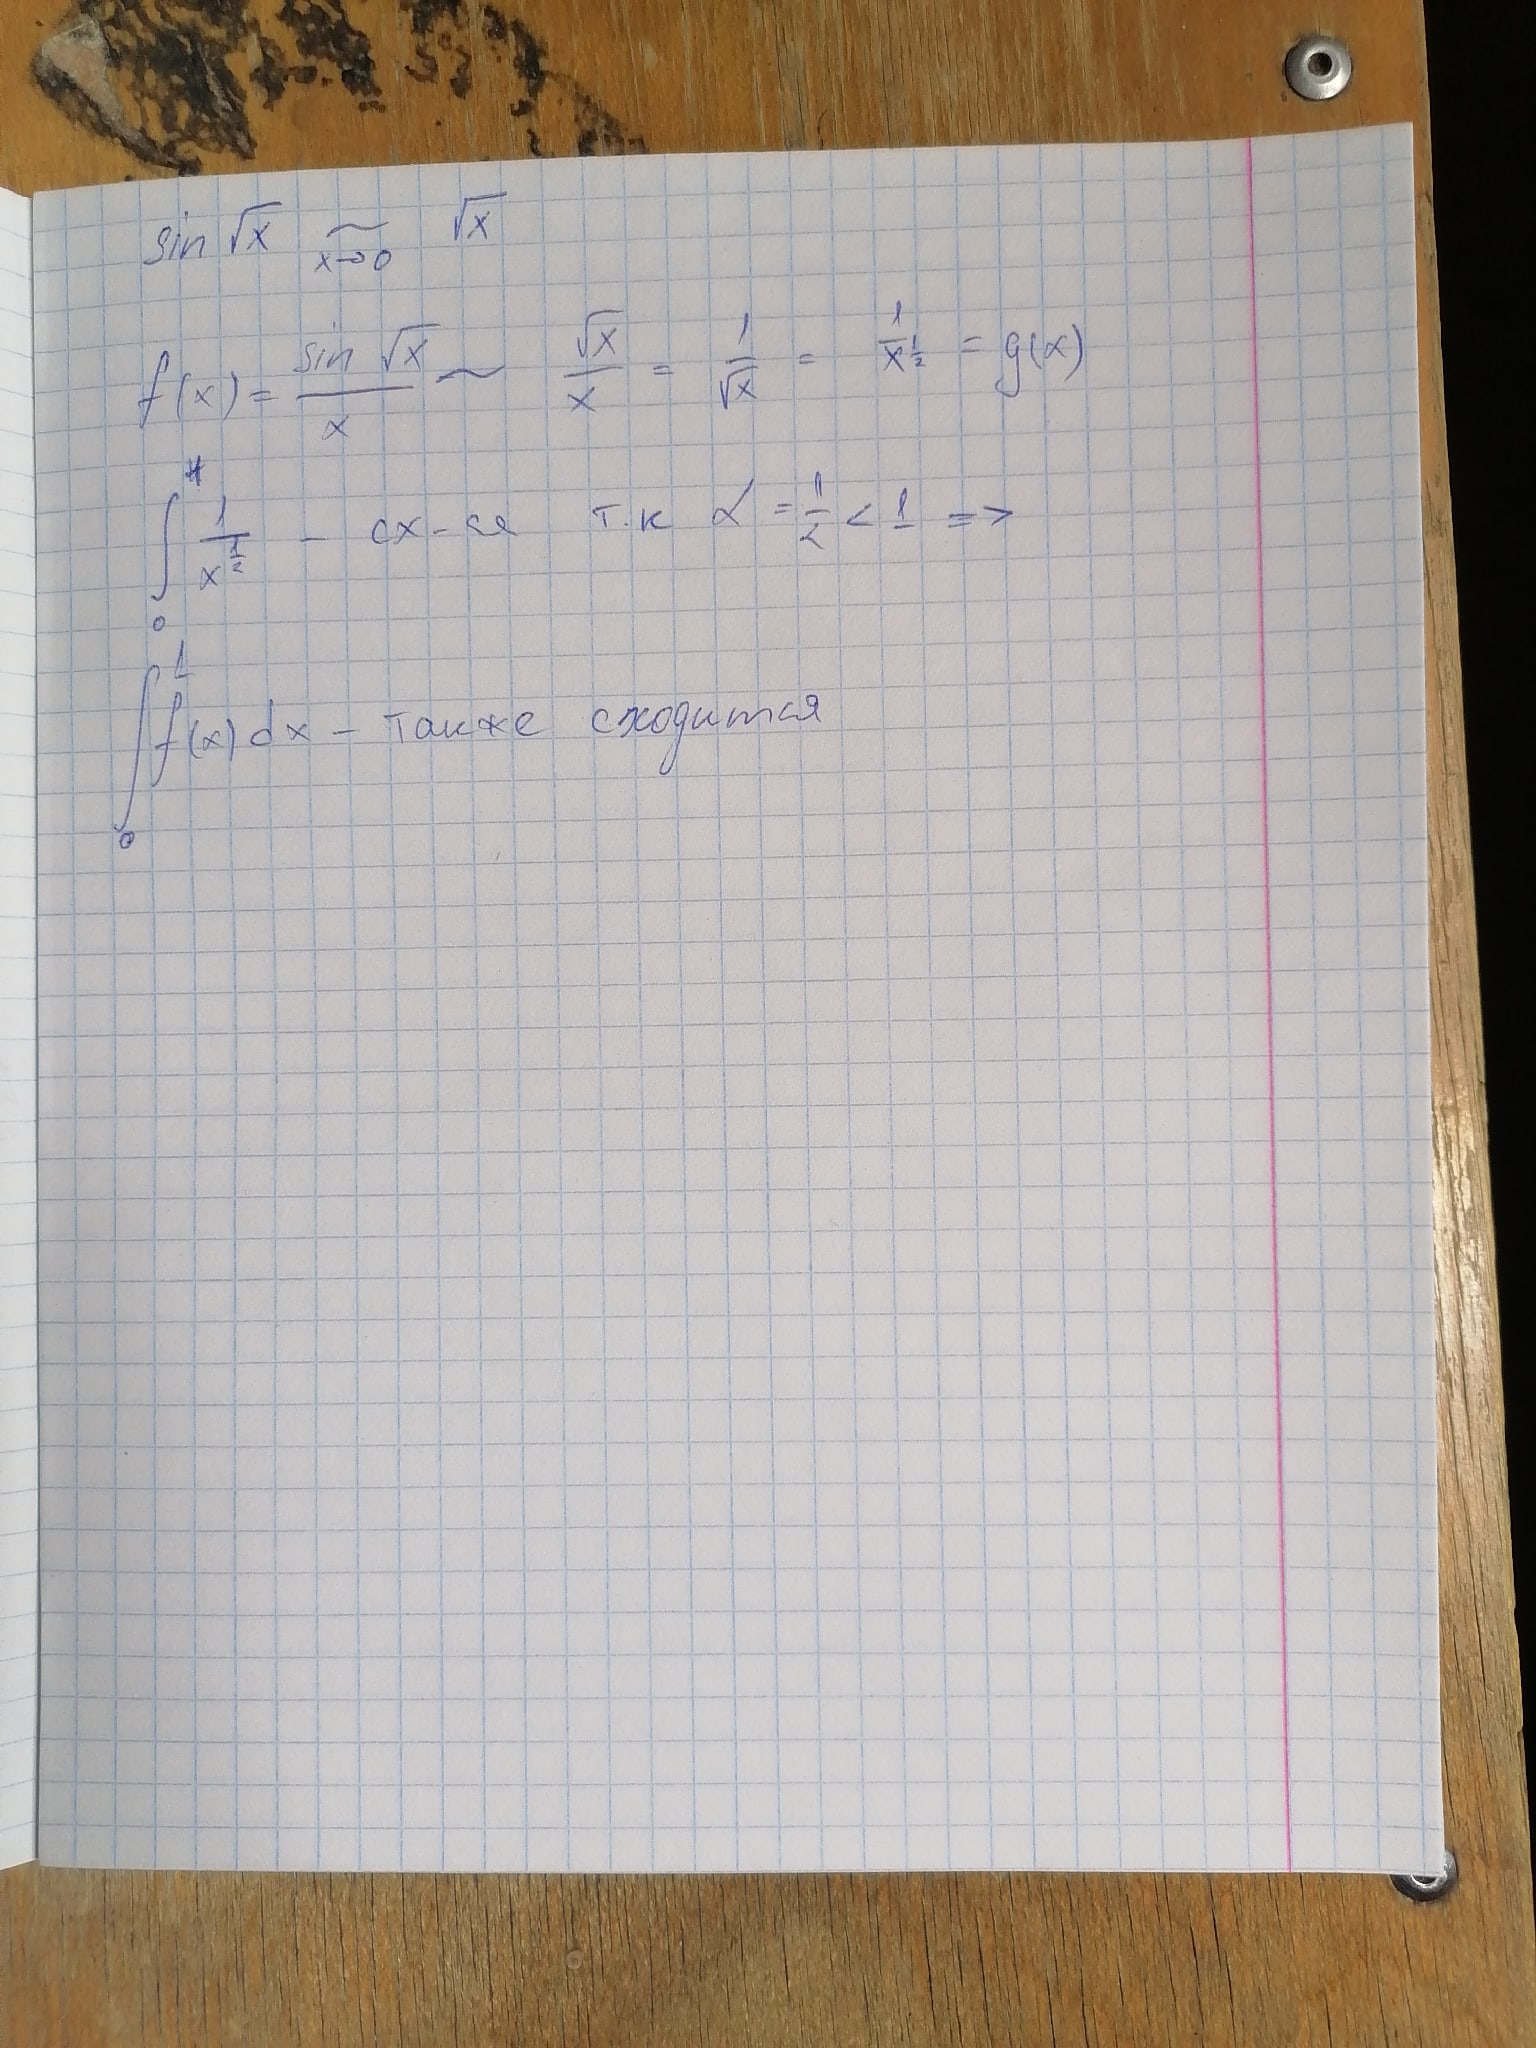 sin √x ~ x→0 √x
f(x) = sin √x / x ~ √x / x = 1/√x = 1/x^(1/2) = g(x)
∫₀¹ 1/x^(1/2) - сх-ся т.к α = 1/2 < 1 =>
∫₀¹ f(x)dx - также сходится